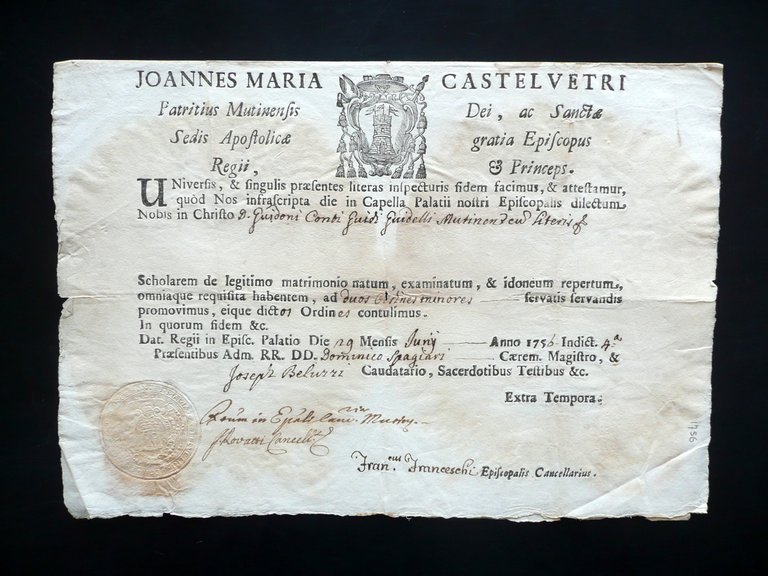 JOANNES MARIA CASTELVETRI
Patritius Mutinensis Dei, ac Sanctæ
Sedis Apostolicæ gratia Episcopus
Regii, & Princeps.
UNiversis, & singulis præsentes literas inspecturis fidem facimus, & attestamur,
quòd Nos infrascripta die in Capella Palatii nostri Episcopalis dilectum
Nobis in Christo D. Guidoni Guidi Guidelli
Scholarem de legitimo matrimonio natum, examinatum, & idoneum repertum,
omniaque requisita habentem, ad duos Ordines minores servatis servandis
promovimus, eique dictos Ordines contulimus.
In quorum fidem &c.
Dat. Regii in Episc. Palatio Die 29 Mensis Junÿ Anno 1756 Indict. 4.a
Præsentibus Adm. RR. DD. Dominico Spagiari Cærem. Magistro, &
Joseph Beluzzi Caudatario, Sacerdotibus Testibus &c.
Extra Tempora.
1756
Franceschi Episcopalis Cancellarius.